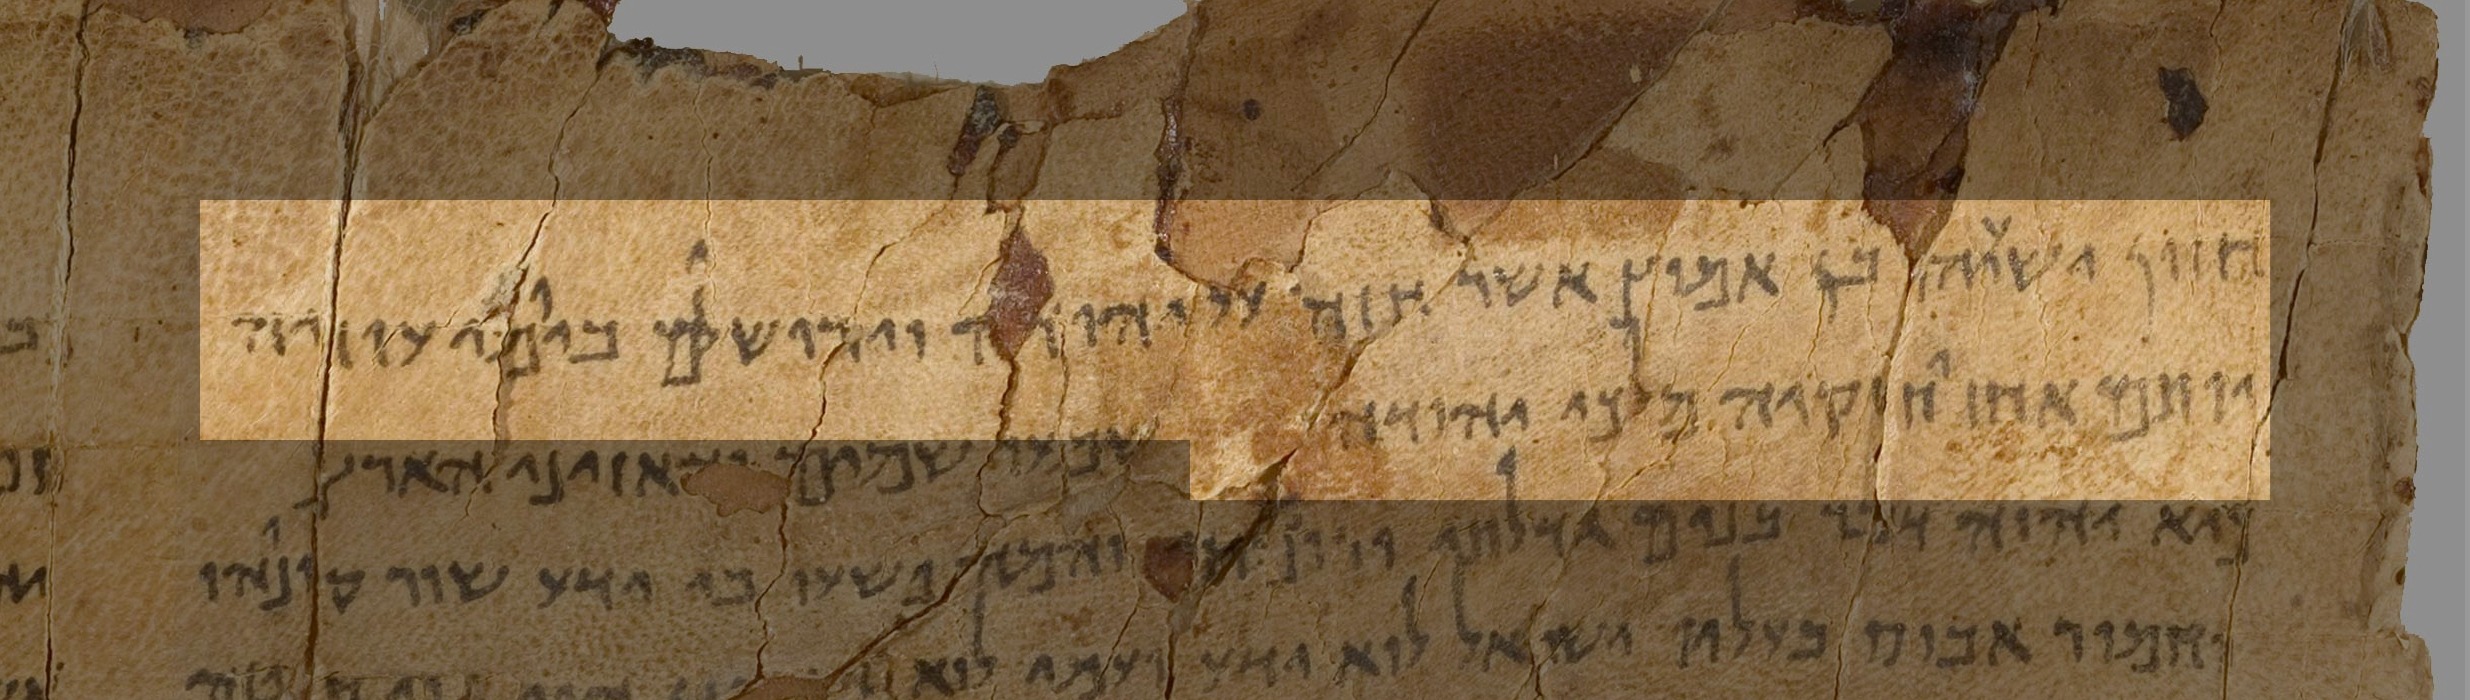 חזון ישעיהו בן אמוץ אשר חזה על יהודה וירושלם ביומי עוזיה
יותם אחז יחזקיה מלכי יהודה שמעו שמים והאזינו הארץ
כיא יהוה דבר בנים גדלתי ורוממתי והמה פשעו בי ידע שור קונהו
וחמור אבוס בעליו ישראל לוא ידע ועמי לוא